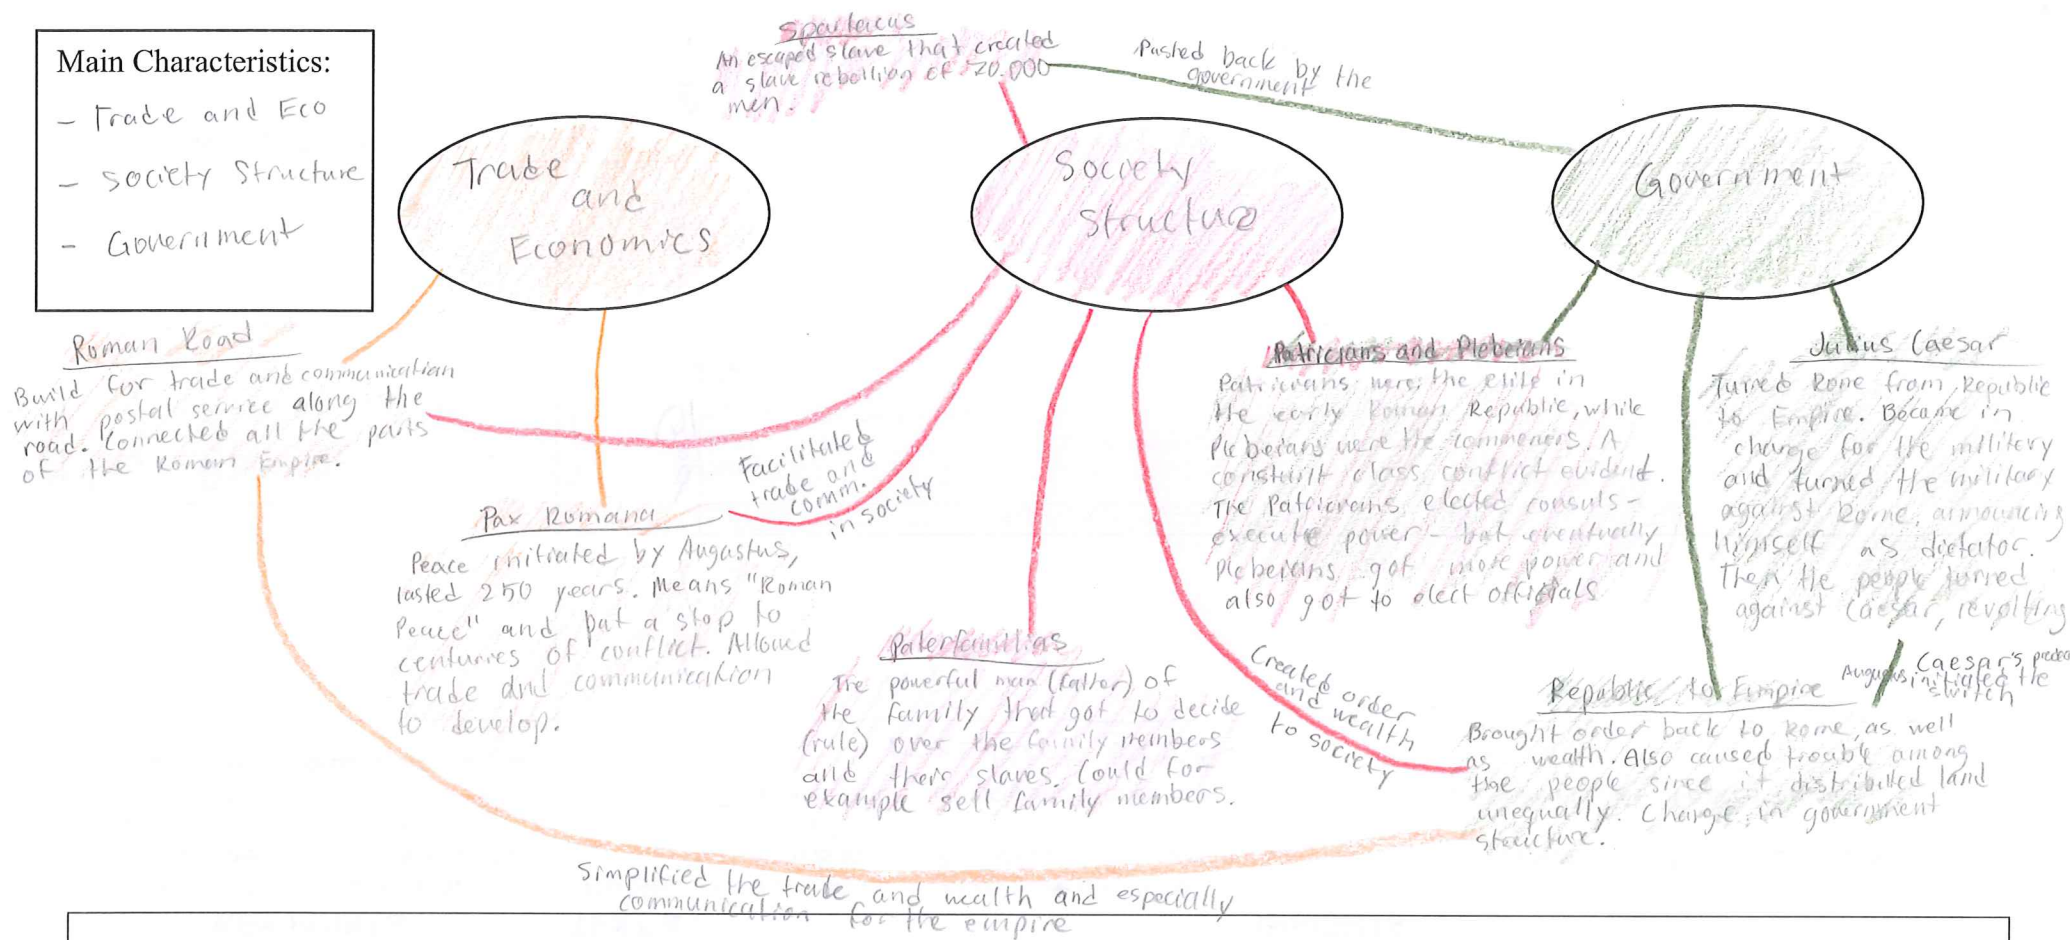 Main Characteristics:
- Trade and Eco
- Society Structure
- Government
Spartacus
An escaped slave that created
a slave rebellion of 70.000
men.
Pushed back by the
government
Trade
and
Economics
Society
Structure
Government
Roman Road
Build for trade and communication
with postal service along the
road. Connected all the parts
of the Roman Empire.
Pax Romana
Peace initiated by Augustus,
lasted 250 years. Means "Roman
Peace" and put a stop to
centuries of conflict. Allowed
trade and communication
to develop.
Facilitated
trade and
comm.
in society
Paterfamilias
The powerful man (father) of
the family that got to decide
(rule) over the family members
and their slaves. Could for
example sell family members.
Patricians and Plebeians
Patricians were the elite in
the early Roman Republic, while
Plebeians were the commeners. A
constant class conflict evident.
The Patricians elected consuls -
execute power - but eventually
plebeians got more power and
also got to elect officials
Julius Caesar
Turned Rome from Republic
to Empire. Became in
charge for the military
and turned the military
against Rome, announcing
himself as dictator.
Then the people turned
against Caesar, revolting
Created order
and wealth
to society
Caesar's
Augustus initiated the
switch
Republic to Empire
Brought order back to Rome, as well
as wealth. Also caused trouble among
the people since it distributed land
unequally. Change in government
structure.
Simplified the trade and wealth and especially
communication for the empire